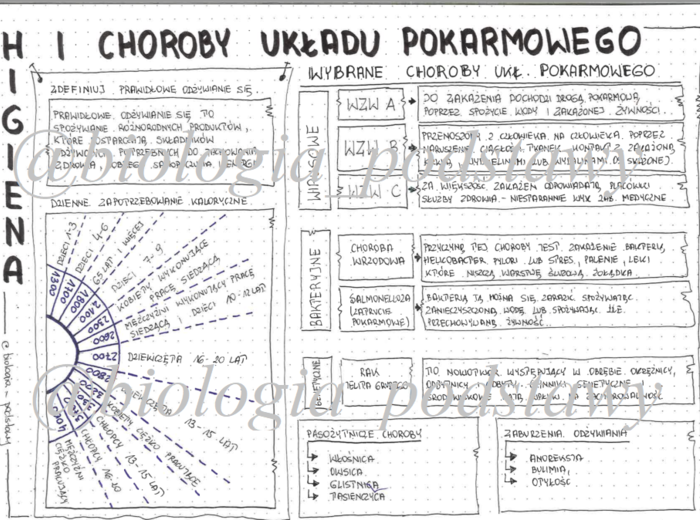 HIGIENA
I CHOROBY UKŁADU POKARMOWEGO
ZDEFINIUJ PRAWIDŁOWE ODŻYWIANIE SIĘ...
PRAWIDŁOWE ODŻYWIANIE SIĘ TO
SPOŻYWANIE RÓŻNORODNYCH PRODUKTÓW,
KTÓRE DOSTARCZAJĄ SKŁADNIKÓW
ODŻYWCZYCH POTRZEBNYCH DO ZACHOWANIA
ZDROWIA, DOBREGO SAMOPOCZUCIA I ENERGII
DZIENNE ZAPOTRZEBOWANIE KALORYCZNE
1300 DZIECI 1-3
1700 DZIECI 4-6
1800 65 LAT I WIĘCEJ
2100 DZIECI 7-9
2300 KOBIETY WYKONUJĄCE
PRACĘ SIEDZĄCĄ
2600 MĘŻCZYŹNI WYKONUJĄCY PRACĘ
SIEDZĄCĄ I DZIECI 10-12 LAT
2700 DZIEWCZĘTA 16-20 LAT
2800 DZIEWCZĘTA 13-15 LAT
KOBIETY CIĘŻKO PRACUJĄCE
CHŁOPCY 13-15 LAT
CHŁOPCY 16-20
4000 MĘŻCZYŹNI
CIĘŻKO
PRACUJĄCY
WYBRANE CHOROBY UKŁ. POKARMOWEGO
WIRUSOWE
WZW A
DO ZAKAŻENIA DOCHODZI DROGĄ POKARMOWĄ,
POPRZEZ SPOŻYCIE WODY I ZAKAŻONEJ ŻYWNOŚCI.
WZW B
PRZENOSZONY Z CZŁOWIEKA NA CZŁOWIEKA POPRZEZ
NARUSZENIE CIĄGŁOŚCI TKANEK, KONTAKT Z ZAKAŻONĄ
KRWIĄ, WYDZIELINAMI LUB WYDALINAMI OS. ZAKAŻONEJ.
WZW C
ZA WIĘKSZOŚĆ ZAKAŻEŃ ODPOWIADAJĄ PLACÓWKI
SŁUŻBY ZDROWIA - NIESTARANNIE WYK. ZAB. MEDYCZNE.
BAKTERYJNE
CHOROBA
WRZODOWA
PRZYCZYNĄ TEJ CHOROBY JEST ZAKAŻENIE BAKTERIĄ
HELICOBAKTER PYLORI LUB STRES, PALENIE, LEKI
KTÓRE NISZCZĄ WARSTWĘ ŚLUZOWĄ ŻOŁĄDKA.
SALMONELLOZA
(ZATRUCIE
POKARMOWE)
BAKTERIĄ TĄ MOŻNA SIĘ ZARAZIĆ SPOŻYWAJĄC
ZANIECZYSZCZONĄ WODĘ LUB SPOŻYWAJĄC ŹLE
PRZECHOWYWANĄ ŻYWNOŚĆ.
GENETYCZNE
RAK
JELITA GRUBEGO
TO NOWOTWÓR WYSTĘPUJĄCY W OBRĘBIE OKRĘŻNICY,
ODBYTNICY I ODBYTU. CZYNNIKI GENETYCZNE
ŚRODOWISKOWE MAJĄ WPŁYW NA ZACHOROWALNOŚĆ
PASOŻYTNICZE CHOROBY
WŁOŚNICA
OWSICA
GLISTNICA
TASIEMCZYCA
ZABURZENIA ODŻYWIANIA
ANOREKSJA
BULIMIA,
OTYŁOŚĆ
@biologia_podstawy
@biologia_podstawy